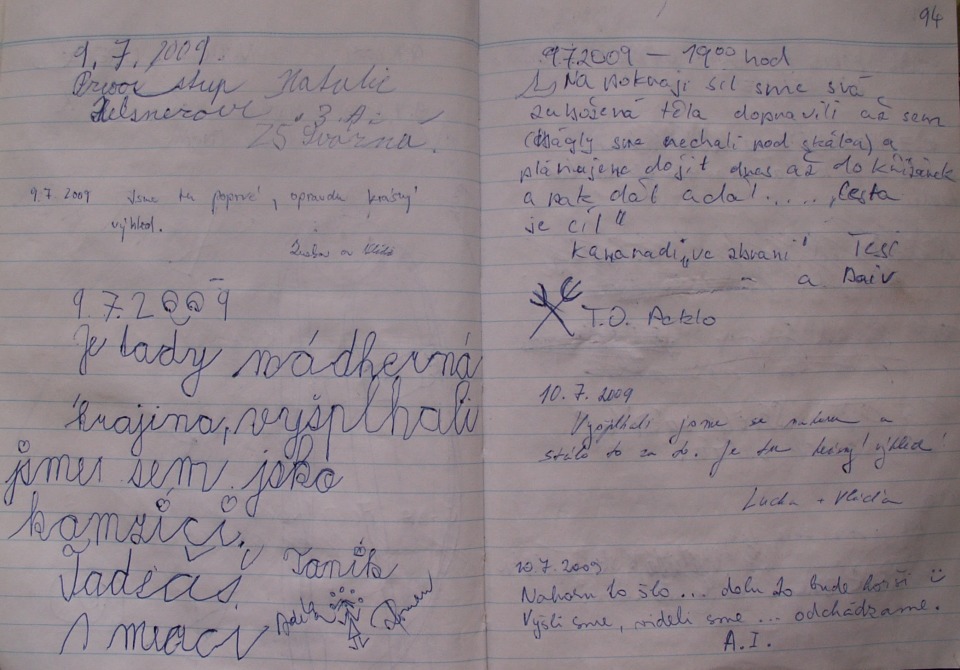 9. 7. 2009.
Natalie
3. A.
ZŠ Tvárná.
9.7.2009 Jsme tu poprvé, opravdu krásný
výhled.
9.7.2009
Je tady nádherná
krajina, vyšplhali
jsme sem jako
kamzíci.
Taďáš Taník
Adéla
94
9.7.2009 – 19⁰⁰ hod
Na pokraji sil sme svá
zubožená těla dopravili až sem
(bágly sme nechali pod skálou) a
plánujeme dojít dnes až do Křižánek
a pak dál a dál..... „Cesta
je cíl"
Kamarádi „ve zbrani" Tesi
a Daiv
T.O.
10. 7. 2009
Vyšplhali jsme se nahoru a
stálo to za to. Je tu krásný výhled!
Lucka + Vláďa
10.7.2009
Nahoru to šlo... dolu to bude horší
Vyšli sme, videli sme ... odchádzame.
A.I.